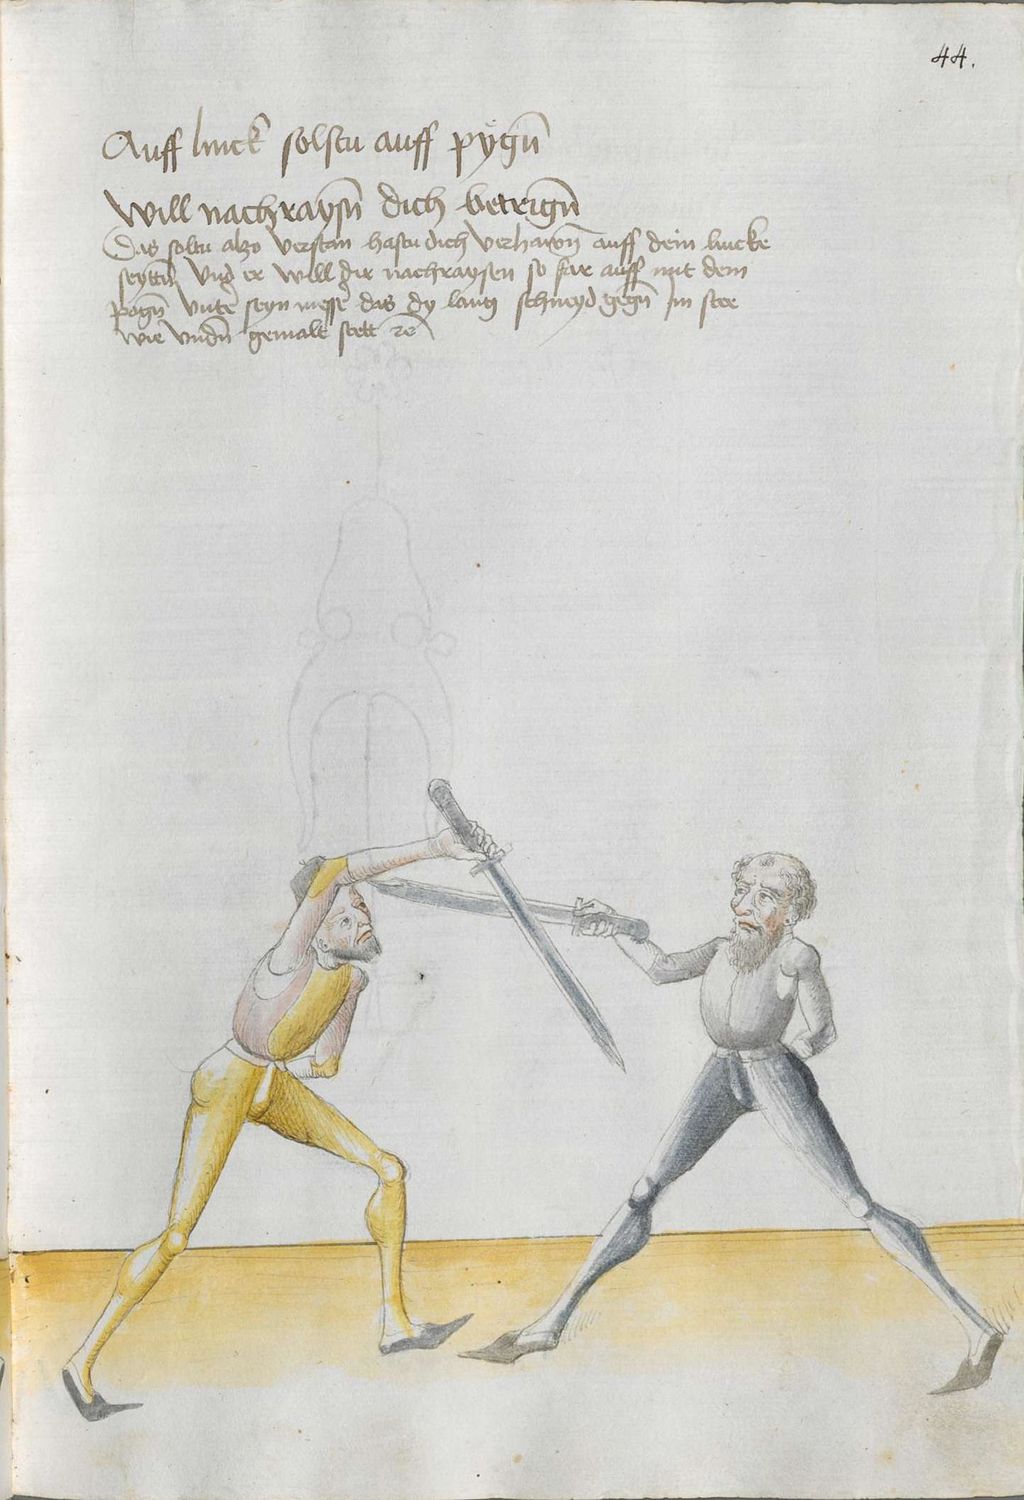 44.
Auff linck solstu auff pÿgn̄
Will nachraysn̄ dich betrign̄
Das soltu alzo verstan hastu dich verhawn̄ auff dein lincke
seyttn̄ vnd er will dir nachraysen so far auff mit dem
pogn̄ vnter seyn messer das dy lang schneyd gegn̄ im stee
wie vndn̄ gemalt stett ꝛc̄